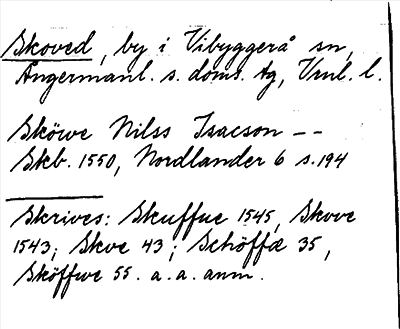 Skoved, by i Vibyggerå sn,
Ångermanl. s. doms. tg, Vrnl. l.
Sköwe Nilss Isacson --
Skb. 1550, Nordlander 6 s. 194
Skrives: Skuffue 1545, Skove
1543; Skve 43; Schöffæ 35,
Sköffwe 55. a. a. anm.